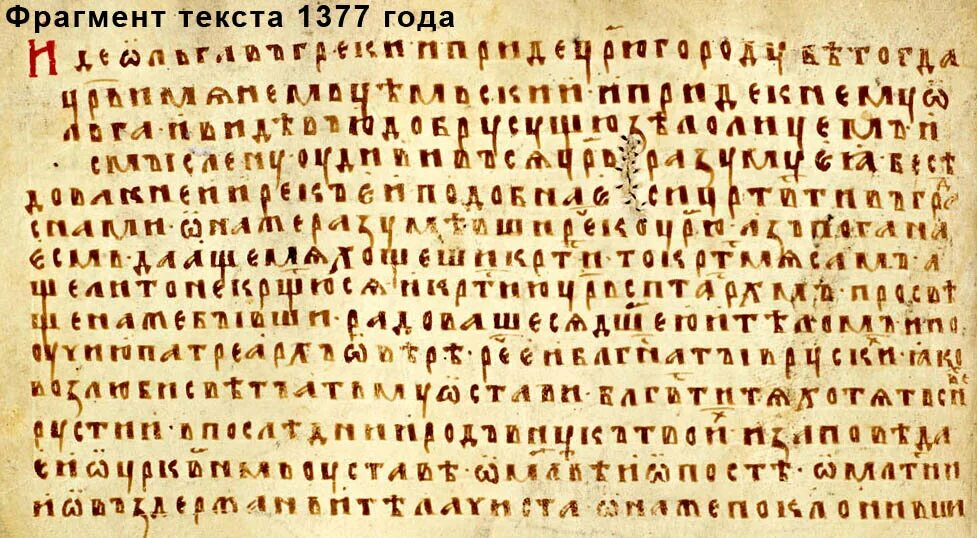 Фрагмент текста 1377 года
Иде ѡльга въ греки и приде црюгороду бѣ тогда
црь имѧнемь цѣмьский и приде к нему ѡ
льга и видѣвъ ю добру сущю зѣло лицемъ и
смыслену оудививъсѧ црь разуму еꙗ бесѣ
дова к неи и рекъ еи подобна еси црт҇вти въ гра
с нами ѡна же разумѣвши реч҇ ко црю азъ погана
есмь да аще мѧ хощеши крт҇ти то крт҇ мѧ самъ а
ще ли то не крщюсѧ и крт҇и ю црь с птрархмь просвѣ
щена же бывши радовашесѧ дшею и тѣломъ и по
оучи ю патреархъ ѡ вѣрѣ реч҇ еи блгн҇а ты в руски ꙗко
возлюби свѣтъ а тьму ѡстави блгв҇ти тѧ хотѧть сн҃ве
рустии в послѣднии родъ внукъ твоих и заповѣда
еи ѡ црквн҇мь оуставѣ ѡ млт҇вѣ и ѡ постѣ ѡ млт҇ни
и ѡ въздержаньи тѣла чиста ѡна же поклонивши